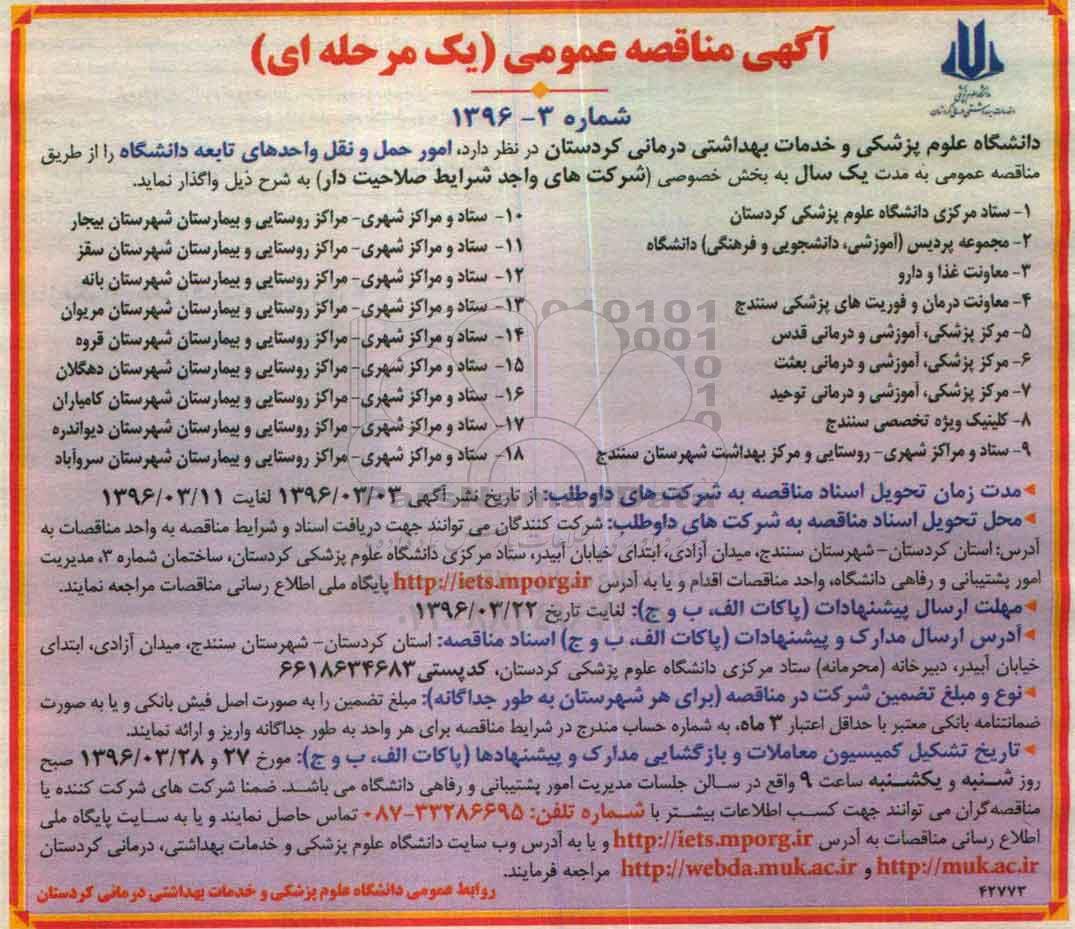 آگهی مناقصه عمومی (یک مرحله ای)
شماره ۳- ۱۳۹۶
دانشگاه علوم پزشکی و خدمات بهداشتی درمانی کردستان در نظر دارد، امور حمل و نقل واحدهای تابعه دانشگاه را از طریق
مناقصه عمومی به مدت یک سال به بخش خصوصی (شرکت های واجد شرایط صلاحیت دار) به شرح ذیل واگذار نماید.
۱- ستاد مرکزی دانشگاه علوم پزشکی کردستان
۲- مجموعه پردیس (آموزشی، دانشجویی و فرهنگی) دانشگاه
۳- معاونت غذا و دارو
۴- معاونت درمان و فوریت های پزشکی سنندج
۵- مرکز پزشکی، آموزشی و درمانی قدس
۶- مرکز پزشکی، آموزشی و درمانی بعثت
۷- مرکز پزشکی، آموزشی و درمانی توحید
۸- کلینیک ویژه تخصصی سنندج
۹- ستاد و مراکز شهری- روستایی و مرکز بهداشت شهرستان سنندج
۱۰- ستاد و مراکز شهری- مراکز روستایی و بیمارستان شهرستان بیجار
۱۱- ستاد و مراکز شهری- مراکز روستایی و بیمارستان شهرستان سقز
۱۲- ستاد و مراکز شهری- مراکز روستایی و بیمارستان شهرستان بانه
۱۳- ستاد و مراکز شهری- مراکز روستایی و بیمارستان شهرستان مریوان
۱۴- ستاد و مراکز شهری- مراکز روستایی و بیمارستان شهرستان قروه
۱۵- ستاد و مراکز شهری- مراکز روستایی و بیمارستان شهرستان دهگلان
۱۶- ستاد و مراکز شهری- مراکز روستایی و بیمارستان شهرستان کامیاران
۱۷- ستاد و مراکز شهری- مراکز روستایی و بیمارستان شهرستان دیواندره
۱۸- ستاد و مراکز شهری- مراکز روستایی و بیمارستان شهرستان سروآباد
مدت زمان تحویل اسناد مناقصه به شرکت های داوطلب: از تاریخ نشر آگهی ۱۳۹۶/۰۳/۰۳ لغایت ۱۳۹۶/۰۳/۱۱
محل تحویل اسناد مناقصه به شرکت های داوطلب: شرکت کنندگان می توانند جهت دریافت اسناد و شرایط مناقصه به واحد مناقصات به
آدرس: استان کردستان- شهرستان سنندج، میدان آزادی، ابتدای خیابان آبیدر، ستاد مرکزی دانشگاه علوم پزشکی کردستان، ساختمان شماره ۳، مدیریت
امور پشتیبانی و رفاهی دانشگاه، واحد مناقصات اقدام و یا به آدرس http://iets.mporg.ir پایگاه ملی اطلاع رسانی مناقصات مراجعه نمایند.
مهلت ارسال پیشنهادات (پاکات الف، ب و ج): لغایت تاریخ ۱۳۹۶/۰۳/۲۲
آدرس ارسال مدارک و پیشنهادات (پاکات الف، ب و ج) اسناد مناقصه: استان کردستان- شهرستان سنندج، میدان آزادی، ابتدای
خیابان آبیدر، دبیرخانه (محرمانه) ستاد مرکزی دانشگاه علوم پزشکی کردستان، کدپستی ۶۶۱۸۶۳۴۶۸۳
نوع و مبلغ تضمین شرکت در مناقصه (برای هر شهرستان به طور جداگانه): مبلغ تضمین را به صورت اصل فیش بانکی و یا به صورت
ضمانتنامه بانکی معتبر با حداقل اعتبار ۳ ماه، به شماره حساب مندرج در شرایط مناقصه برای هر واحد به طور جداگانه واریز و ارائه نمایند.
تاریخ تشکیل کمیسیون معاملات و بازگشایی مدارک و پیشنهادها (پاکات الف، ب و ج): مورخ ۲۷ و ۱۳۹۶/۰۳/۲۸ صبح
روز شنبه و یکشنبه ساعت ۹ واقع در سالن جلسات مدیریت امور پشتیبانی و رفاهی دانشگاه می باشد. ضمنا شرکت های شرکت کننده یا
مناقصه گران می توانند جهت کسب اطلاعات بیشتر با شماره تلفن: ۳۳۲۸۶۶۹۵-۰۸۷ تماس حاصل نمایند و یا به سایت پایگاه ملی
اطلاع رسانی مناقصات به آدرس http://iets.mporg.ir و یا به آدرس وب سایت دانشگاه علوم پزشکی و خدمات بهداشتی، درمانی کردستان
http://muk.ac.ir و http://webda.muk.ac.ir مراجعه فرمایند.
۴۲۷۷۳
روابط عمومی دانشگاه علوم پزشکی و خدمات بهداشتی درمانی کردستان